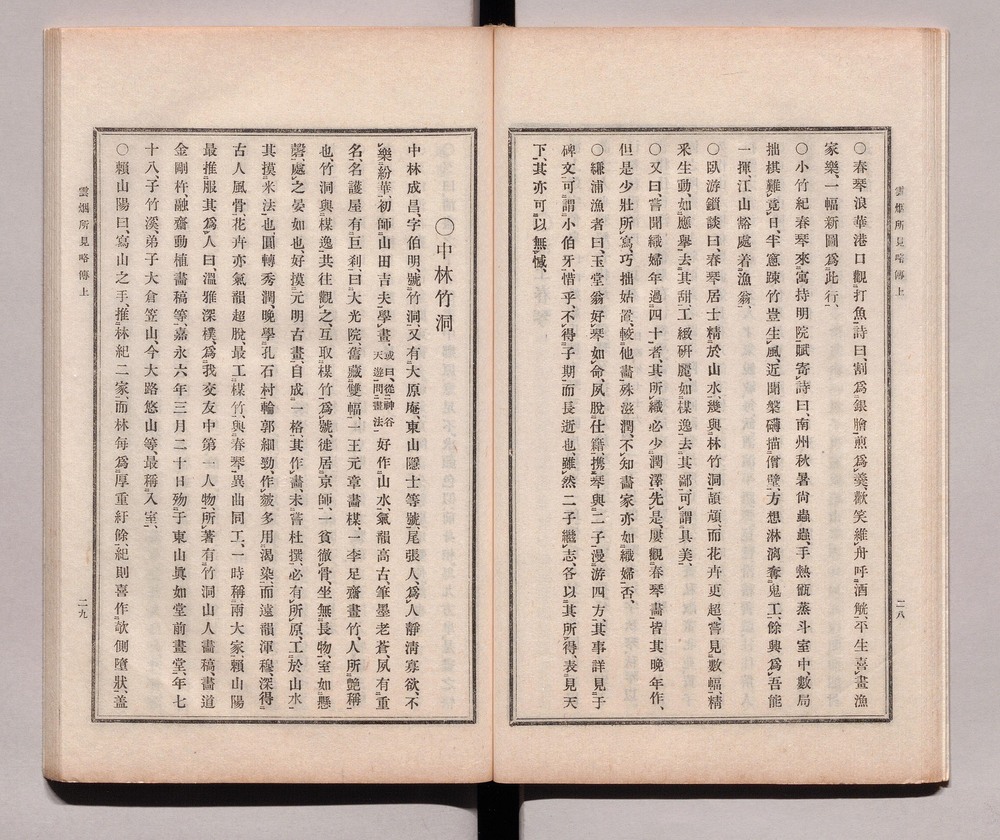 雲烟所見略傳上
二八
〇春琴浪華港口觀打魚詩曰、割爲銀膾煎爲羹、歡笑維舟呼酒觥、平生喜畫漁
家樂、一幅新圖爲此行、
〇小竹紀春琴來寓持明院賦寄詩曰、南州秋暑尚蟲蟲、手熱甑蒸斗室中、數局
拙棋難竟日、半窻踈竹豈生風、近聞槃礴描僧壁、方想淋漓奪鬼工、餘興爲吾能
一揮、江山豁處着漁翁、
〇臥游鎖談曰、春琴居士精於山水、幾與林竹洞頡頏、而花卉更超、嘗見數幅、精
釆生動、如應擧去其甜、工緻硏麗、如楳逸去其鄙、可謂具美、
〇又曰、嘗聞織婦年過四十者、其所織必少潤澤、先是屢觀春琴畵、皆其晚年作、
但是少壯所寫、巧拙姑置、較他畵殊滋潤、不知畵家亦如織婦否、
〇縑浦漁者曰、玉堂翁好琴如命、夙脫仕籍、携琴與二子漫游四方、其事詳見于
碑文、可謂小伯牙、惜乎不得子期而長逝也、雖然二子繼志、各以其所得表見天
下、其亦可以無憾、
〇中林竹洞
中林成昌、字伯明、號竹洞、又有大原庵東山隱士等號、尾張人、爲人靜淸寡欲、不
樂紛華、初師山田吉夫學畫、或曰、從神谷天遊問畫法、好作山水、氣韻高古、筆墨老蒼、夙有重
名、名護屋有巨刹曰大光院、舊藏雙幅、一王元章畵楳、一李足齋畫竹、人所艶稱
也、竹洞與楳逸共往觀之、互取楳竹爲號、徙居京師、一貧徹骨、坐無長物、室如懸
磬、處之晏如也、好摸元明古畫、自成一格、其作畫未嘗杜撰、必有所原、工於山水、
其摸米法也、圓轉秀潤、晚學孔石村、輪郭細勁、作皴多用渴染、而遠韻渾穆、深得
古人風骨、花卉亦氣韻超脫、最工楳竹、與春琴異曲同工、一時稱兩大家、賴山陽
最推服其爲人曰、溫雅深樸、爲我交友中第一人物、所著有竹洞山人畵稿、畵道
金剛杵、融齋動植畵稿等、嘉永六年三月二十日歿于東山眞如堂前畫堂、年七
十八、子竹溪、弟子大倉笠山、今大路悠山等、最稱入室、
〇賴山陽曰、寫山之手、推林紀二家、而林每爲厚重紆餘、紀則喜作欹側墮狀、蓋
雲烟所見略傳上
二九